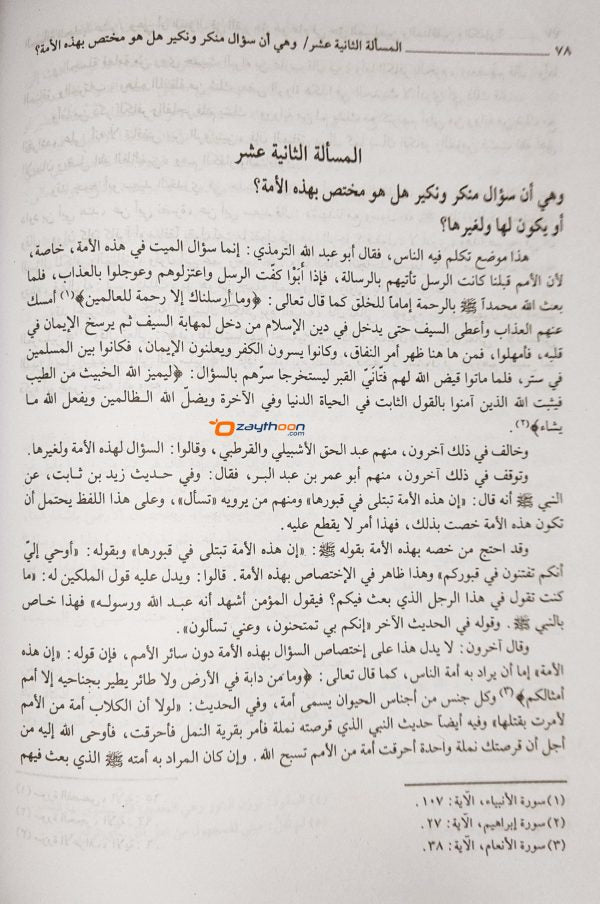 ٧٨ المسألة الثانية عشر/ وهي أن سؤال منكر ونكير هل هو مختص بهذه الأمة؟
المسألة الثانية عشر
وهي أن سؤال منكر ونكير هل هو مختص بهذه الأمة؟
أو يكون لها ولغيرها؟
هذا موضع تكلم فيه الناس، فقال أبو عبد الله الترمذي: إنما سؤال الميت في هذه الأمة، خاصة،
لأن الأمم قبلنا كانت الرسل تأتيهم بالرسالة، فإذا أَبَوْا كفّت الرسل واعتزلوهم وعوجلوا بالعذاب، فلما
بعث الله محمداً ﷺ بالرحمة إماماً للخلق كما قال تعالى: ﴿وما أرسلناك إلا رحمة للعالمين﴾(١) أمسك
عنهم العذاب وأعطى السيف حتى يدخل في دين الإسلام من دخل لمهابة السيف ثم يرسخ الإيمان في
قلبه، فأمهلوا، فمن ها هنا ظهر أمر النفاق، وكانوا يسرون الكفر ويعلنون الإيمان، فكانوا بين المسلمين
في ستر، فلما ماتوا قيض الله لهم فتّانَيّ القبر ليستخرجا سرّهم بالسؤال: ﴿ليميز الله الخبيث من الطيب
فيثبت الله الذين آمنوا بالقول الثابت في الحياة الدنيا وفي الآخرة ويضلّ الله الظالمين ويفعل الله ما
يشاء﴾(٢).
Ozaythoon
.com
وخالف في ذلك آخرون، منهم عبد الحق الأشبيلي والقرطبي، وقالوا: السؤال لهذه الأمة ولغيرها.
وتوقف في ذلك آخرون، منهم أبو عمر بن عبد البر، فقال: وفي حديث زيد بن ثابت، عن
النبي ﷺ أنه قال: «إن هذه الأمة تبتلى في قبورها» ومنهم من يرويه «تسأل»، وعلى هذا اللفظ يحتمل أن
تكون هذه الأمة خصت بذلك، فهذا أمر لا يقطع عليه.
وقد احتج من خصه بهذه الأمة بقوله ﷺ: «إن هذه الأمة تبتلى في قبورها» وبقوله: «أوحي إليّ
أنكم تفتنون في قبوركم» وهذا ظاهر في الإختصاص بهذه الأمة. قالوا: ويدل عليه قول الملكين له: «ما
كنت تقول في هذا الرجل الذي بعث فيكم؟ فيقول المؤمن أشهد أنه عبد الله ورسوله» فهذا خاص
بالنبي ﷺ. وقوله في الحديث الآخر «إنكم بي تمتحنون، وعني تسألون».
وقال آخرون: لا يدل هذا على إختصاص السؤال بهذه الأمة دون سائر الأمم، فإن قوله: «إن هذه
الأمة» إما أن يراد به أمة الناس، كما قال تعالى: ﴿وما من دابة في الأرض ولا طائر يطير بجناحيه إلا أمم
أمثالكم﴾(٣) وكل جنس من أجناس الحيوان يسمى أمة، وفي الحديث: «لولا أن الكلاب أمة من الأمم
لأمرت بقتلها» وفيه أيضاً حديث النبي الذي قرصته نملة فأمر بقرية النمل فأحرقت، فأوحى الله إليه من
أجل أن قرصتك نملة واحدة أحرقت أمة من الأمم تسبح الله. وإن كان المراد به أمته ﷺ الذي بعث فيهم
(١) سورة الأنبياء، الآية: ١٠٧.
(٢) سورة إبراهيم، الآية: ٢٧.
(٣) سورة الأنعام، الآية: ٣٨.